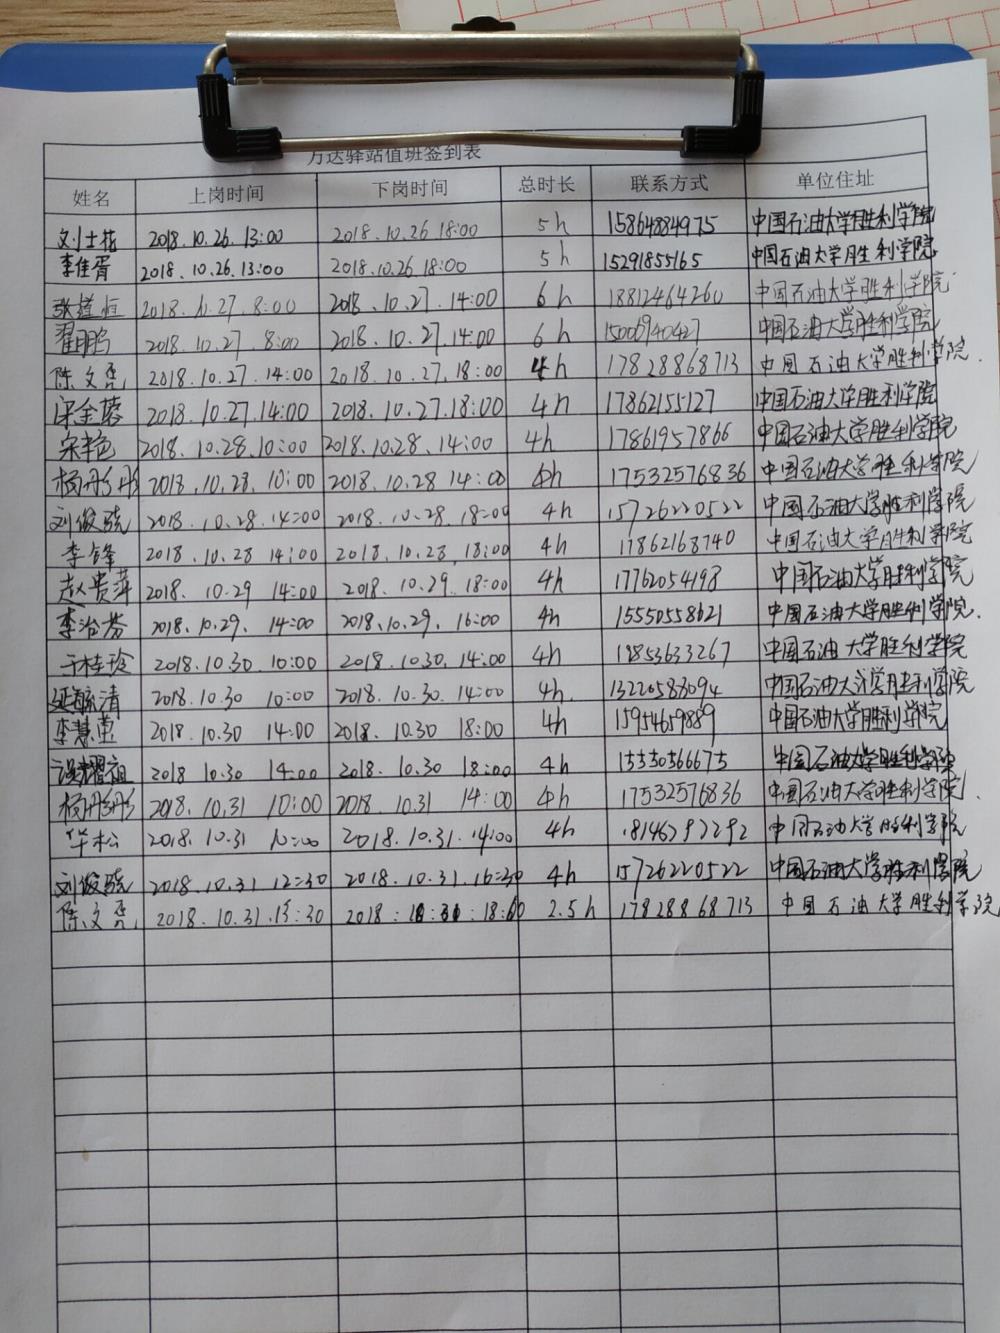 万达驿站值班签到表
姓名 上岗时间 下岗时间 总时长 联系方式 单位住址
刘士花 2018.10.26.13:00 2018.10.26 18:00 5h 15864884975 中国石油大学胜利学院
李佳胥 2018.10.26.13:00 2018.10.26.18:00 5h 15291855165 中国石油大学胜利学院
2018.10.27.8:00 2018.10.27.14:00 6h 18812464260 中国石油大学胜利学院
翟鹏 2018.10.27.8:00 2018.10.27.14:00 6h 15006940427 中国石油大学胜利学院
陈文 2018.10.27.14:00 2018.10.27.18:00 4h 17828868713 中国石油大学胜利学院.
宋金蓉 2018.10.27.14:00 2018.10.27.18:00 4h 17862155127 中国石油大学胜利学院
宋艳 2018.10.28.10:00 2018.10.28.14:00 4h 17861957866 中国石油大学胜利学院
杨彤彤 2018.10.28.10:00 2018.10.28 14:00 4h 17532576836 中国石油大学胜利学院
刘俊骁 2018.10.28.14:00 2018.10.28.18:00 4h 15726220522 中国石油大学胜利学院
李锋 2018.10.28 14:00 2018.10.28.18:00 4h 17862168740 中国石油大学胜利学院
赵贵萍 2018.10.29 14:00 2018.10.29.18:00 4h 17762054198 中国石油大学胜利学院
李治芬 2018.10.29.14:00 2018.10.29.16:00 4h 15550558621 中国石油大学胜利学院.
于桂玲 2018.10.30 10:00 2018.10.30.14:00 4h 19853633267 中国石油大学胜利学院
延毓清 2018.10.30 10:00 2018.10.30.14:00 4h. 13220588094 中国石油大学胜利学院
李慧 2018.10.30 14:00 2018.10.30 18:00 4h 15954659889 中国石油大学胜利学院
耀祖 2018.10.30 14:00 2018.10.30 18:00 4h 15550566675 中国石油大学胜利学院
杨彤彤 2018.10.31 10:00 2018.10.31 14:00 4h 17532576836 中国石油大学胜利学院.
华松 2018.10.31 10:00 2018.10.31.14:00 4h 中国石油大学胜利学院
刘俊骁 2018.10.31 12:30 2018.10.31.16:30 4h 15726220522 中国石油大学胜利学院
陈文 2018.10.31.15:30 2.5h 17828868713 中国石油大学胜利学院